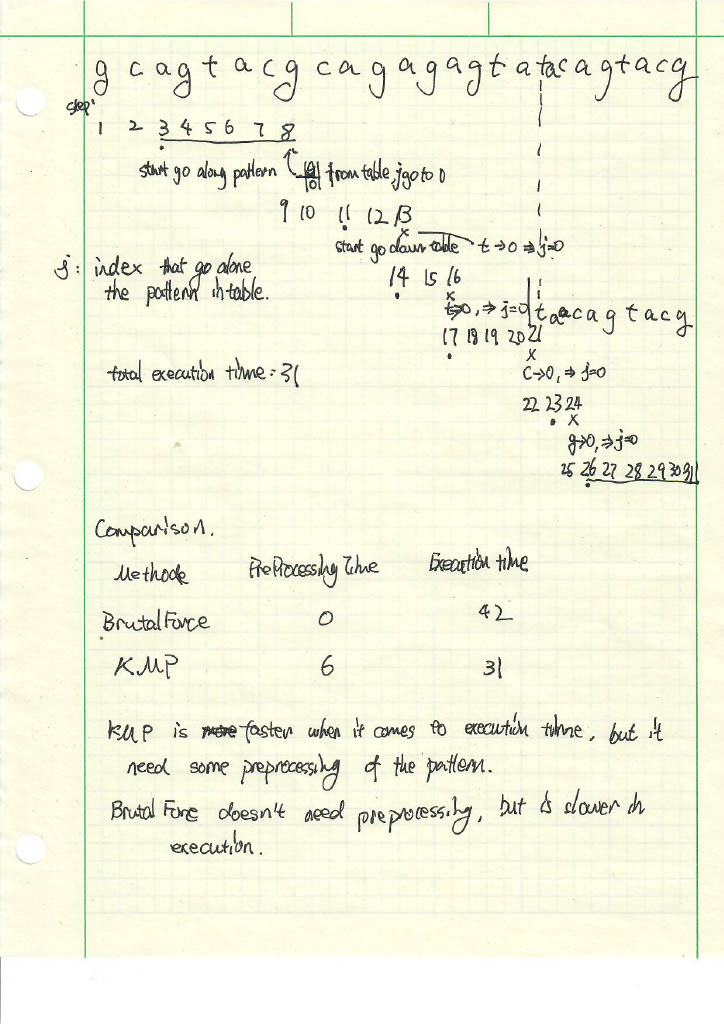 g c a g t a c g c a g a g a g t a t a c a g t a c g
step:
1 2 3 4 5 6 7 8
start go along pattern from table, j go to 0
9 10 11 12 13
x
start go down table t → 0 ⇒ j=0
14 15 16
x
j: index that go alone
the pattern in table.
t→0, ⇒ j=0 t a c a g t a c g
17 18 19 20 21
x
total execution time: 31
C→0, ⇒ j=0
22 23 24
x
g→0, ⇒ j=0
25 26 27 28 29 30 31
Comparison.
Methode PreProcessing Time Execution time
Brutal Force 0 42
KMP 6 31
KMP is faster when it comes to execution time, but it
need some preprocessing of the pattern.
Brutal Force doesn't need preprocessing, but is slower in
execution.